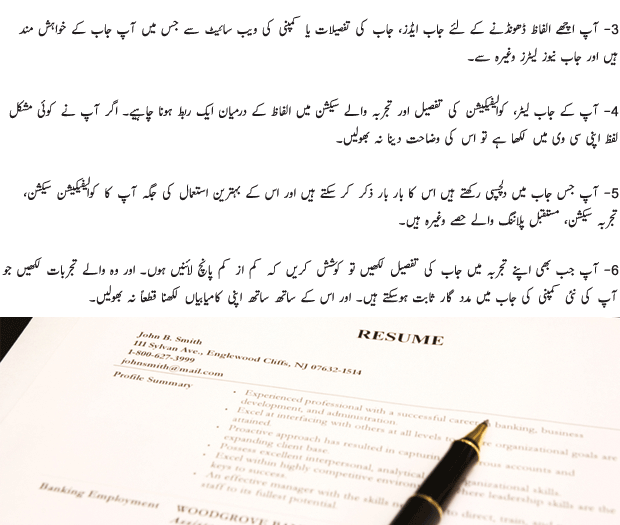 3- آپ اچھے الفاظ ڈھونڈنے کے لئے جاب ایڈز، جاب کی تفصیلات یا کمپنی کی ویب سائیٹ سے جس میں آپ جاب کے خواہش مند
ہیں اور جاب نیوز لیٹرز وغیرہ سے۔
4- آپ کے جاب لیٹر، کوالیفیکیشن کی تفصیل اور تجربہ والے سیکشن میں الفاظ کے درمیان ایک ربط ہونا چاہیے۔ اگر آپ نے کوئی مشکل
لفظ اپنی سی وی میں لکھا ہے تو اس کی وضاحت دینا نہ بھولیں۔
5- آپ جس جاب میں دلچسپی رکھتے ہیں اس کا بار بار ذکر کر سکتے ہیں اور اس کے بہترین استعمال کی جگہ آپ کا کوالیفیکیشن سیکشن،
تجربہ سیکشن، مستقبل پلاننگ والے حصے وغیرہ ہیں۔
6- آپ جب بھی اپنے تجربہ میں جاب کی تفصیل لکھیں تو کوشش کریں کہ کم از کم پانچ لائنیں ہوں۔ اور وہ والے تجربات لکھیں جو
آپ کی نئی کمپنی کی جاب میں مدد گار ثابت ہوسکتے ہیں۔ اور اس کے ساتھ ساتھ اپنی کامیابیاں لکھنا قطعاً نہ بھولیں۔
RESUME
John B. Smith
111 Sylvan Ave., Englewood Cliffs, NJ 07632-1514
1-800-627-3999
johnsmith@mail.com
Profile Summary
• Experienced professional with a successful career in banking, business
development, and administration
• Excel at interfacing with others at all levels to organizational goals are
attained.
• Proactive approach has resulted in capturing accounts and
expanding client base
• Possess excellent interpersonal, analytical organizational skills.
• Excel within highly competitive environments where leadership skills are the
keys to success.
• An effective manager with the skills to direct, train,
staff to its fullest potential.
Banking Employment
WOODGROVE